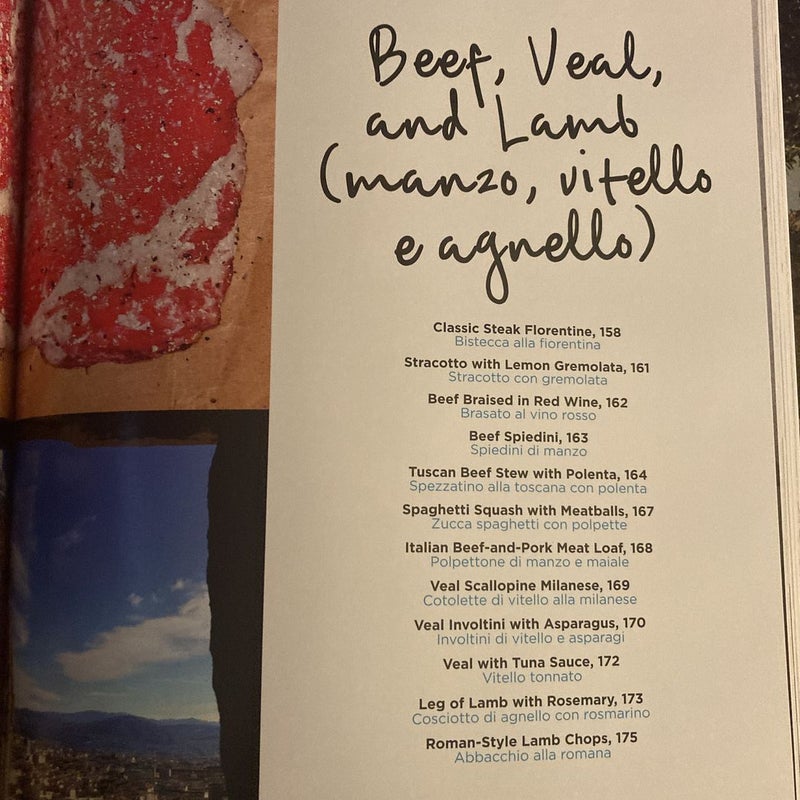 Beef, Veal,
and Lamb
(manzo, vitello
e agnello)
Classic Steak Florentine, 158
Bistecca alla fiorentina
Stracotto with Lemon Gremolata, 161
Stracotto con gremolata
Beef Braised in Red Wine, 162
Brasato al vino rosso
Beef Spiedini, 163
Spiedini di manzo
Tuscan Beef Stew with Polenta, 164
Spezzatino alla toscana con polenta
Spaghetti Squash with Meatballs, 167
Zucca spaghetti con polpette
Italian Beef-and-Pork Meat Loaf, 168
Polpettone di manzo e maiale
Veal Scallopine Milanese, 169
Cotolette di vitello alla milanese
Veal Involtini with Asparagus, 170
Involtini di vitello e asparagi
Veal with Tuna Sauce, 172
Vitello tonnato
Leg of Lamb with Rosemary, 173
Cosciotto di agnello con rosmarino
Roman-Style Lamb Chops, 175
Abbacchio alla romana